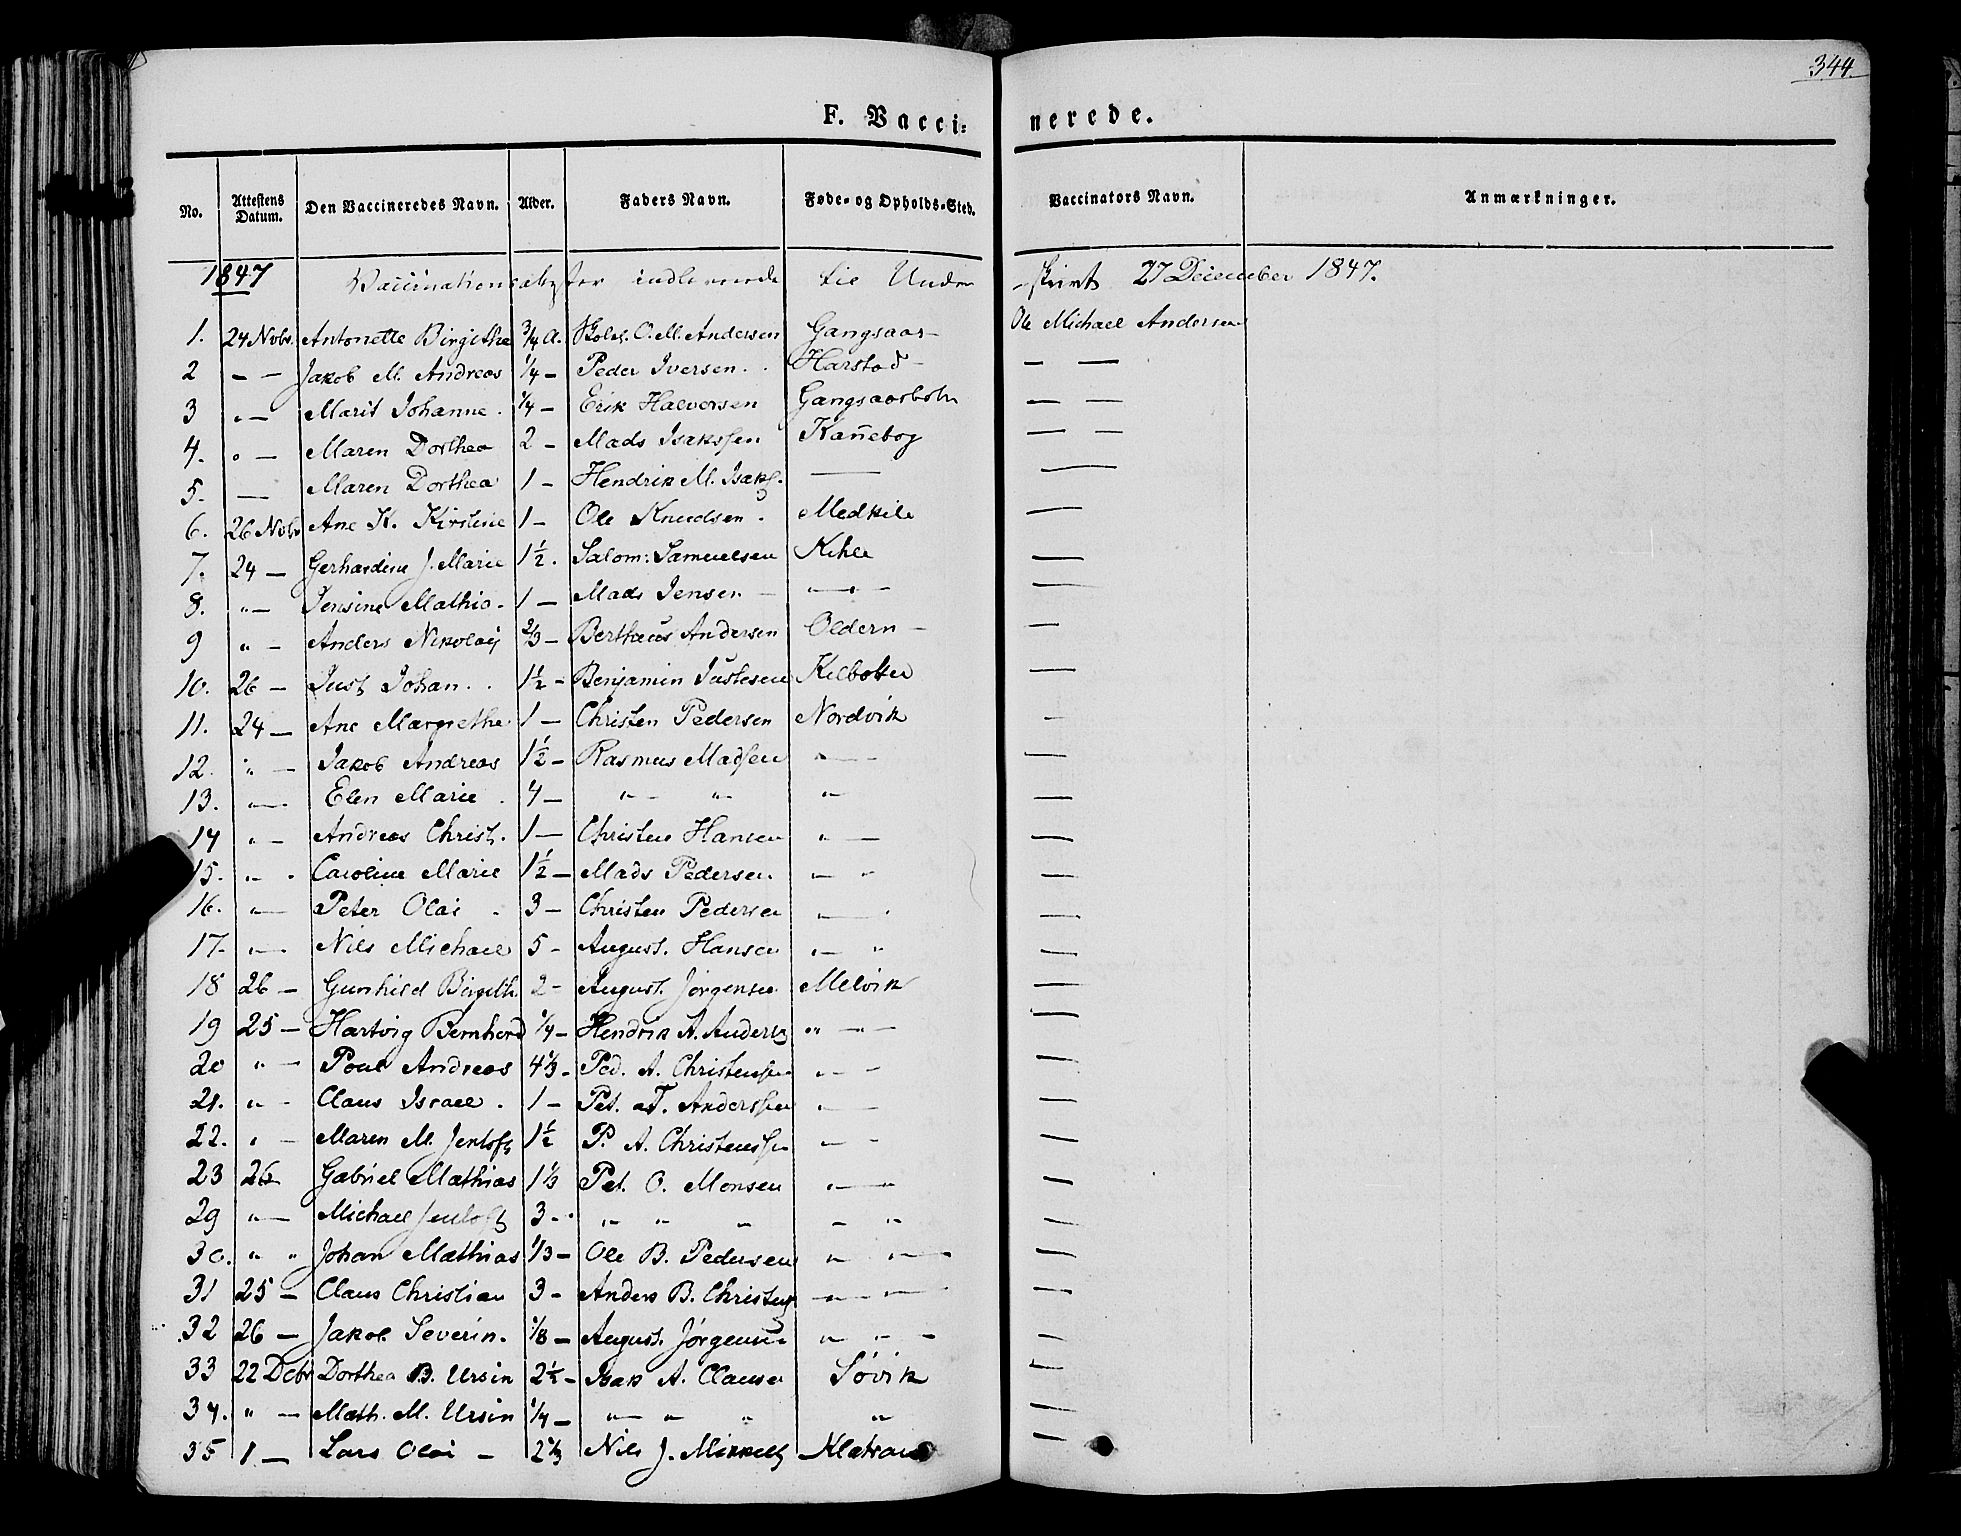 344
F. Vaccinerede.
No. | Attestens Datum. | Den Vaccineredes Navn. | Alder. | Faders Navn. | Føde- og Opholds-Sted. | Vaccinators Navn. | Anmærkninger.
1847 Vaccinationsattester indleverede til Underskrivt 27 December 1847.
1. 24 Novbr. Antonette Birgithe 3/4 A. O. M. Andersen Gangsaas – Ole Michael Andersen
2 – – Jakob M. Andreas 1/4 – Peder Iversen. Harstad – — —
3 " – Marit Johanne. 1/4 – Erik Halversen Gangsaasbotn — —
4. " – Maren Dorthea 2 – Mads Isakssen Kañebog — —
5. — Maren Dorthea 1 – Hendrik M. Isaks. — —
6. 26 Novbr Ane K. Kirstine 1 – Ole Knudsen. Medkile —
7. 24 – Gerhardine J. Marie 1½. Salom: Samuelsen Kihle —
8. " – Jensine Mathia. 1 – Mads Jensen – " – —
9 " – Anders Nikolaij 2/3 – Berthæus Andersen Oldern – —
10. 26 – Just Johan. 1½ – Benjamin Justesen Kilbotten —
11. 24 – Ane Margrethe 1 – Christen Pedersen Nordvik —
12. " – Jakob Andreas 1½ – Rasmus Madsen " – —
13. " – Elen Marie. 4 – " – " " – —
14 " – Andreas Christ. 1 – Christen Hansen " – —
15. " – Caroline Marie 1½ – Mads Pedersen " – " —
16. " – Peter Olai 3 – Christen Pedersen " – —
17. " – Nils Michael 5 – August. Hansen " – " —
18 26 – Gunhild Birgith. 2 – August. Jørgensen Melvik —
19 25 – Hartvig Bernhard 1/4 – Hendrik A. Anders " – " – —
20 " – Poul Andreas 4 1/3 – Ped. A. Christensen " – —
21. " – Claus Israel. 1 – Pet. T. Anderssen " – —
22. " – Maren M. Jentoft 1½ P. A. Christenssen " – —
23 26 Gabriel Mathias 1 1/3 Pet. O. Monsen " – " —
29 " – Michael Jentoft 3 – " – " " – " —
30. " " Johan Mathias 1/3 – Ole B. Pedersen " " – —
31 25 – Claus Christian 3 – Anders B. Christens – " – " – —
32 26 – Jakob Severin. 1/8 – August. Jørgensen " " – —
33 22 Dcbr Dorthea B. Ursin 2½ – Isak A. Clausen Søvik —
34. " – Math. M. Ursin 1/4 – " – " " " —
35 1 – Lars Olai – 2 1/3 Nils J. Mikkels —